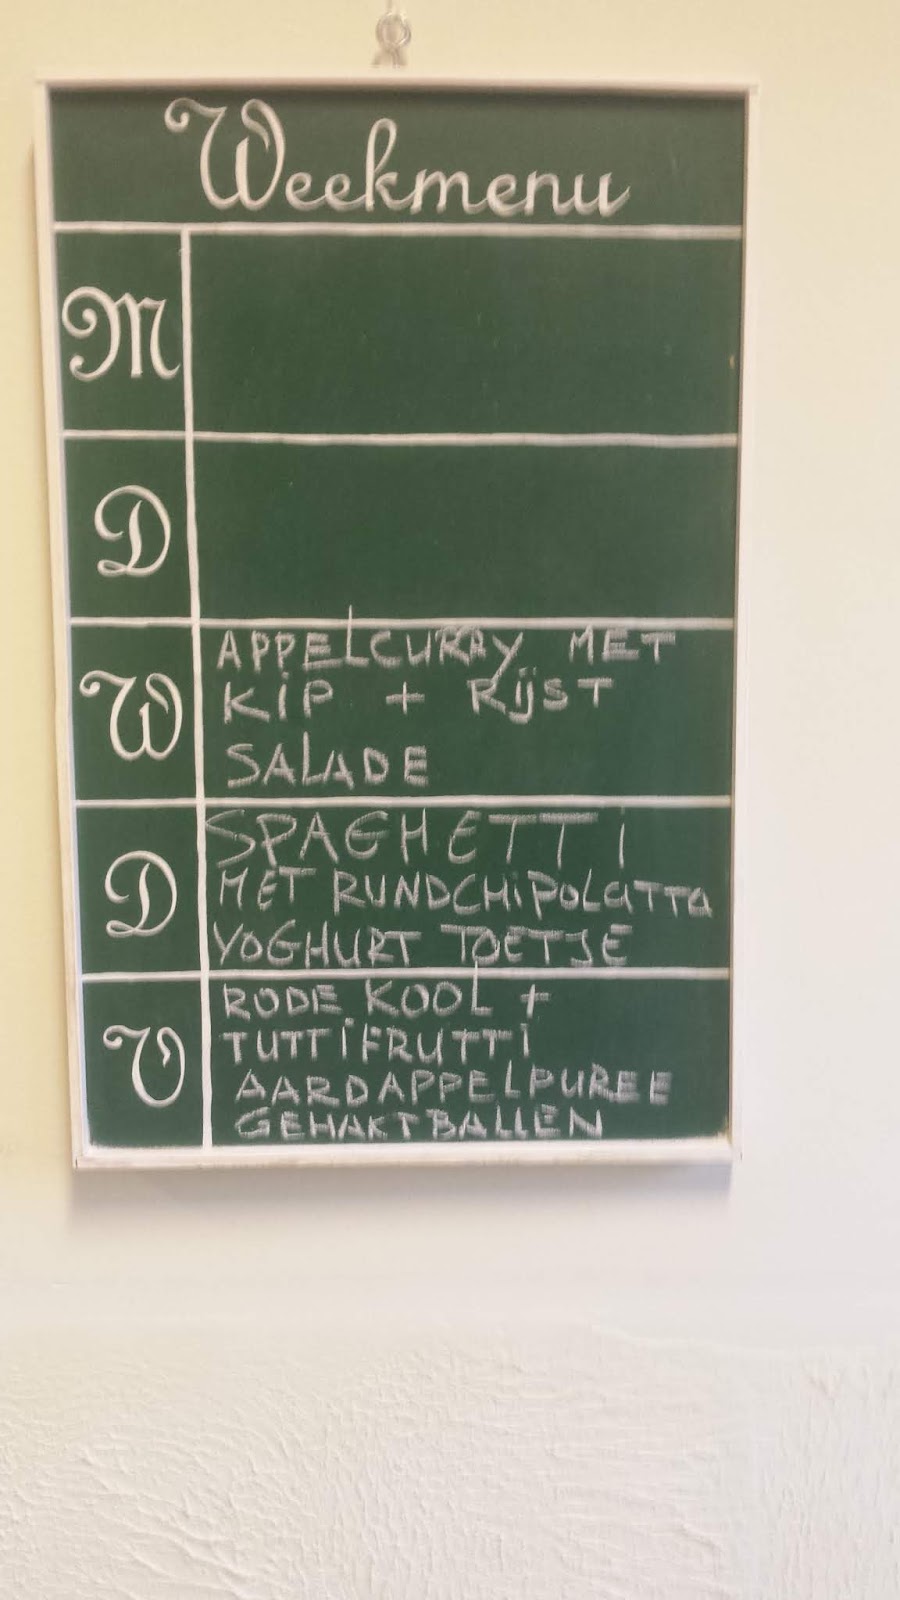 Weekmenu
M
D
W
APPELCURRY MET
KIP + RIJST
SALADE
D
SPAGHETTI
MET RUNDCHIPOLATTA
YOGHURT TOETJE
V
RODE KOOL +
TUTTIFRUTTI
AARDAPPELPUREE
GEHAKTBALLEN